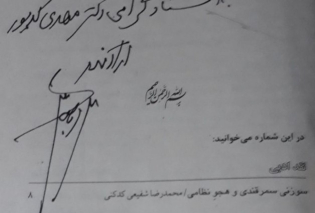 استاد گرامی دکتر مهدی کدیور
ارادتمند
بسم الله الرحمن الرحیم
در این شماره می‌خوانید:
نقد ادبی
سوزنی سمرقندی و هجو نظامی / محمدرضا شفیعی کدکنی ۸